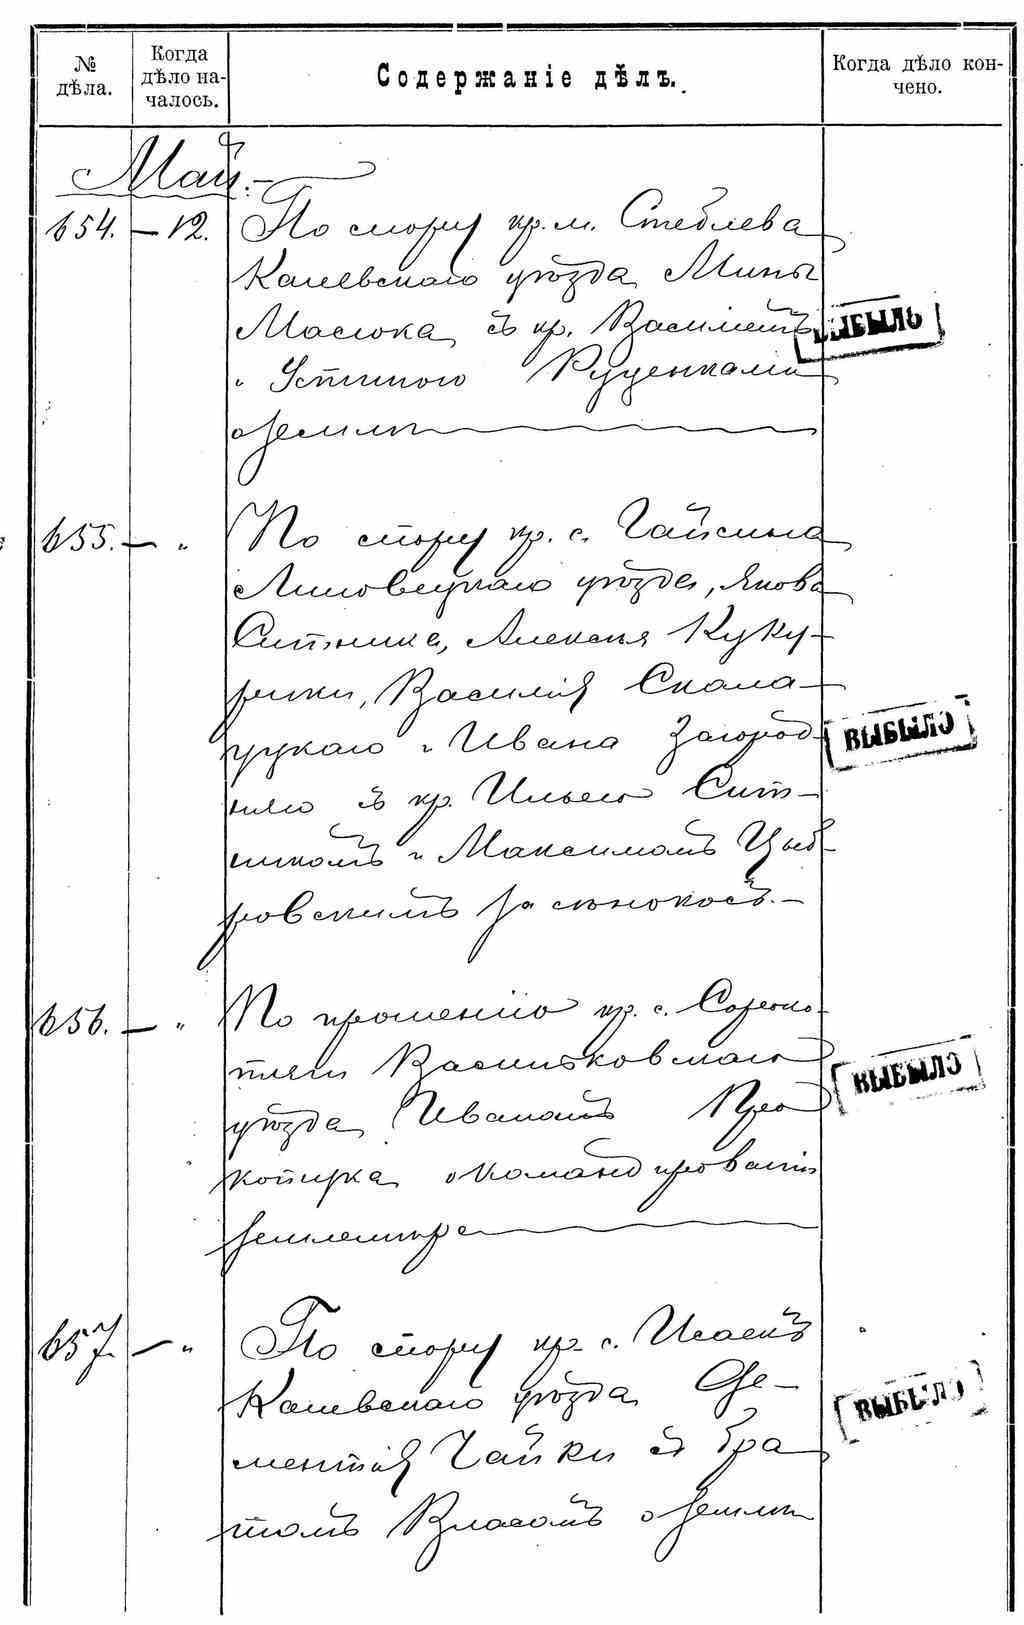 № дѣла.
Когда дѣло на-
чалось.
Содержаніе дѣлъ.
Когда дѣло кон-
чено.
Май.
654. — 12. По спору кр. м. Стеблева
Каневскаго уѣзда Мины
Масюка съ кр. Василіемъ
и Устиною Руденками
о землѣ
ВЫБЫЛО
655. — " По спору кр. с. Гайсина
Липовецкаго уѣзда, Якова
Ситника, Алексѣя Куку-
рики, Василія Скала-
цкаго и Ивана Загород-
няго съ кр. Ильею Сит-
никомъ и Максимомъ Цыб-
ровскимъ за сѣнокосъ.—
ВЫБЫЛО
656. — " По прошенію кр. с.
Васильковскаго
уѣзда Иваномъ Про
о командированіи
землемѣра
ВЫБЫЛО
657. — " По спору кр. с. Исаекъ
Каневскаго уѣзда Де-
ментія Чайки съ бра
томъ Власомъ о землѣ
ВЫБЫЛО